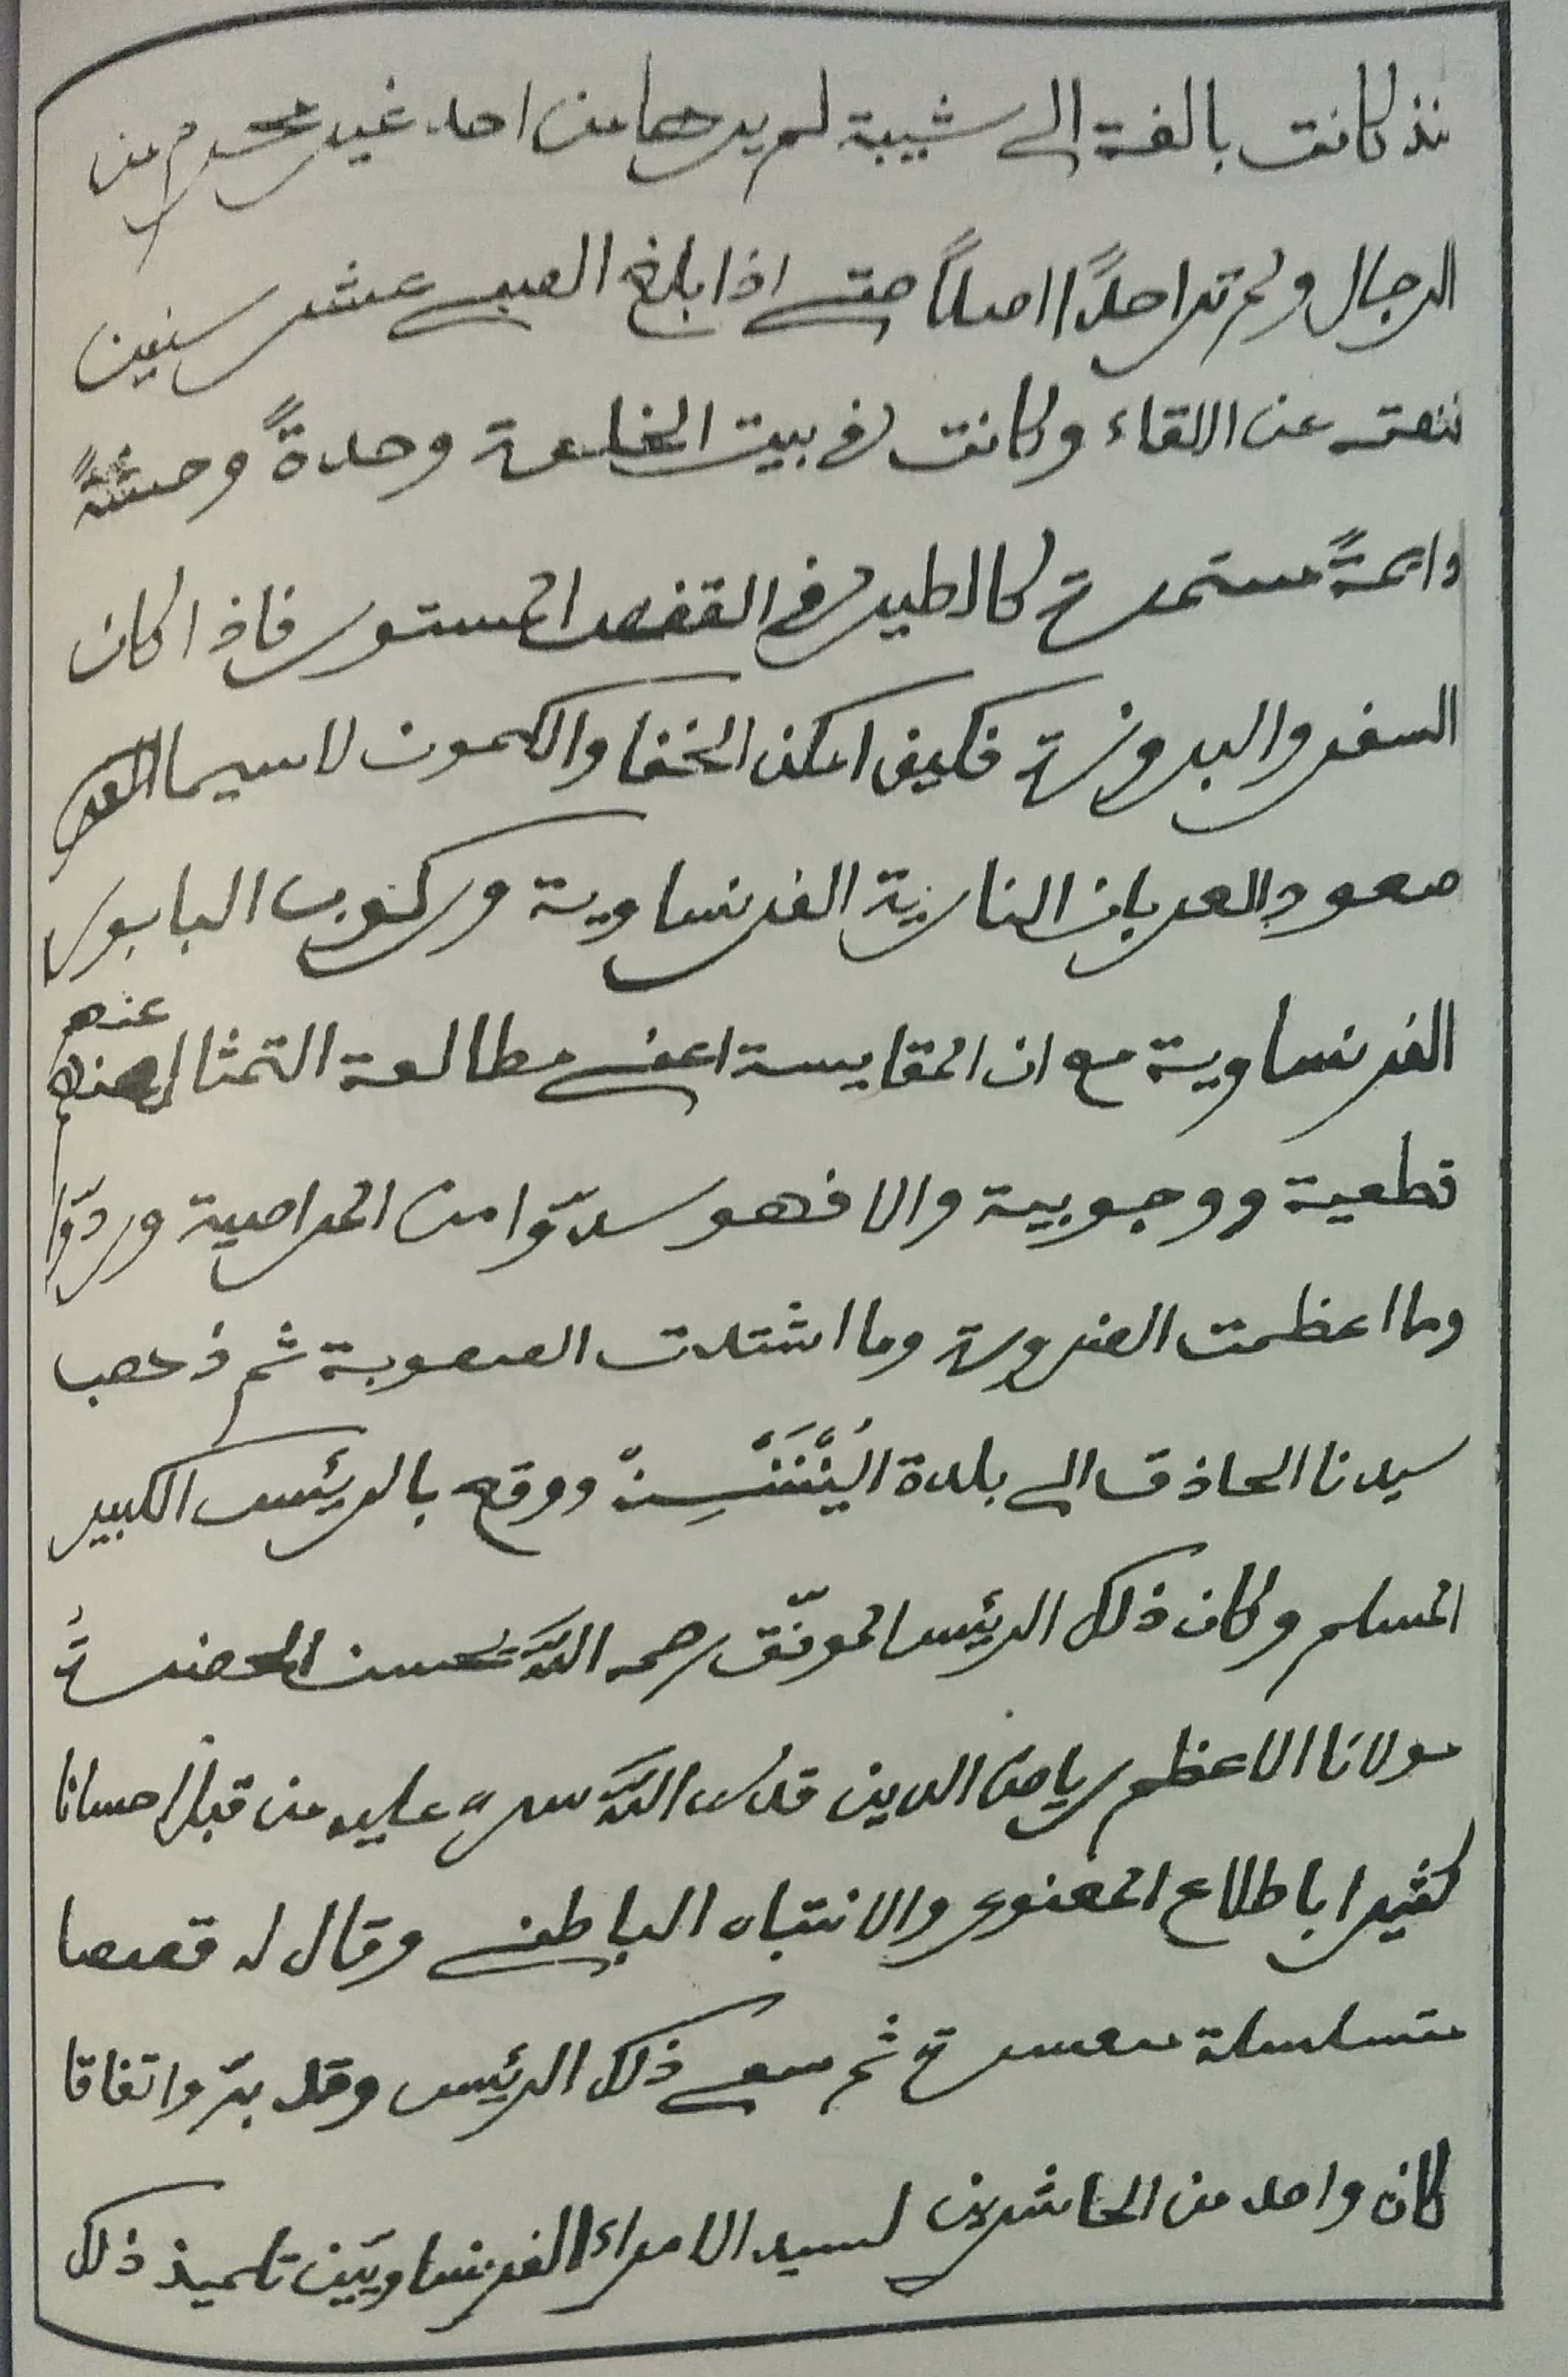 كانت بالغة الى شيبة لم يرها من احد غير محرم من
الرجال ولم تر احدًا اصلًا حتى اذا بلغ الصبي عشر سنين
عن اللقاء وكانت في بيت الخلعة وحدةً وحشةً
دائمةً مستمرة كالطير في القفص المستور فاذا كان
السفر والبروزة فكيف امكن الخفا والكمون لاسيما
صعود العربان النارية الفرنساوية وركوب البابور
الفرنساوية مع ان المقايسة اعني مطالعة التمثال عنه
قطعية ووجوبية والا فهو سدّوا من الحراصية وردّوا
وما اعظمت الضرورة وما اشتدت الصعوبة ثم ذهب
سيدنا الحاذق الى بلدة ووقع بالرئيس الكبير
المسلم وكان ذلك الرئيس الموفّق رحمه اللّه يحسن الحضرةُ
مولانا الاعظم رياض الدين قدس اللّه سره عليه من قبل احسانا
كثيرا باطلاع المعنوي والانتباه الباطني وقال له قصصا
متسلسلة معسرة ثم سعى ذلك الرئيس وقد بيّر واتفاقا
كان واحد من الحاشرين لسيد الامراء الفرنساويّين تلميذ ذلك